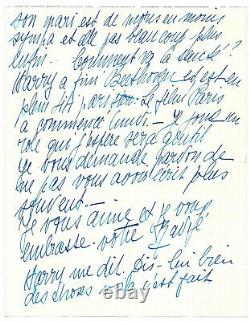 son mari est de moins en moins
sympa et elle pas beaucoup plus
Comment va la santé?
Harry a fini Beethoven et est en
plein dit par son. Le film Paris
a commencé lundi - je suis en
role qui j'espère sera gentil
je vous demande pardon de
ne pas vous avoir écrit plus
souvent -
je vous aime et je vous
embrasse. votre
Harry me dit. dis-lui bien
des choses voilà c'est fait